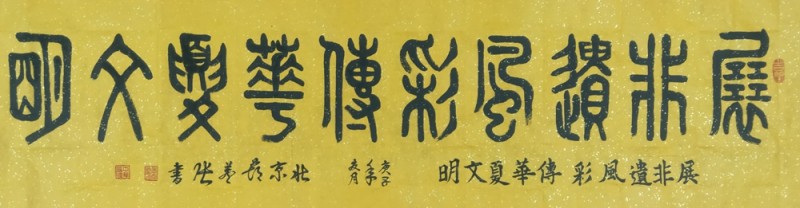 展非遺風彩傳華夏文明
展非遺風彩傳華夏文明
庚子年
夏月
北京
書